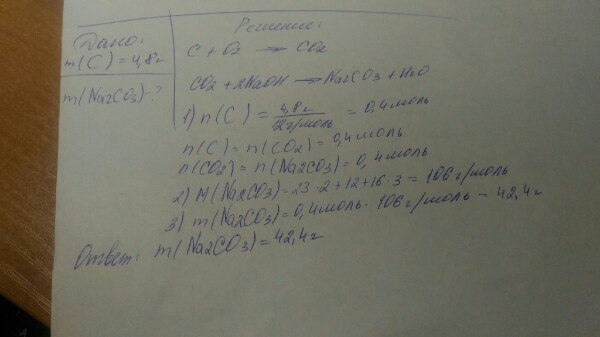 Дано:
m(C) = 4,8г
m(Na2CO3)-?
Решение:
C + O2 → CO2
CO2 + 2NaOH → Na2CO3 + H2O
1) n(C) = 4,8г / 12г/моль = 0,4моль
n(C) = n(CO2) = 0,4моль
n(CO2) = n(Na2CO3) = 0,4моль
2) M(Na2CO3) = 23·2+12+16·3 = 106г/моль
3) m(Na2CO3) = 0,4моль · 106г/моль = 42,4г
Ответ: m(Na2CO3) = 42,4г